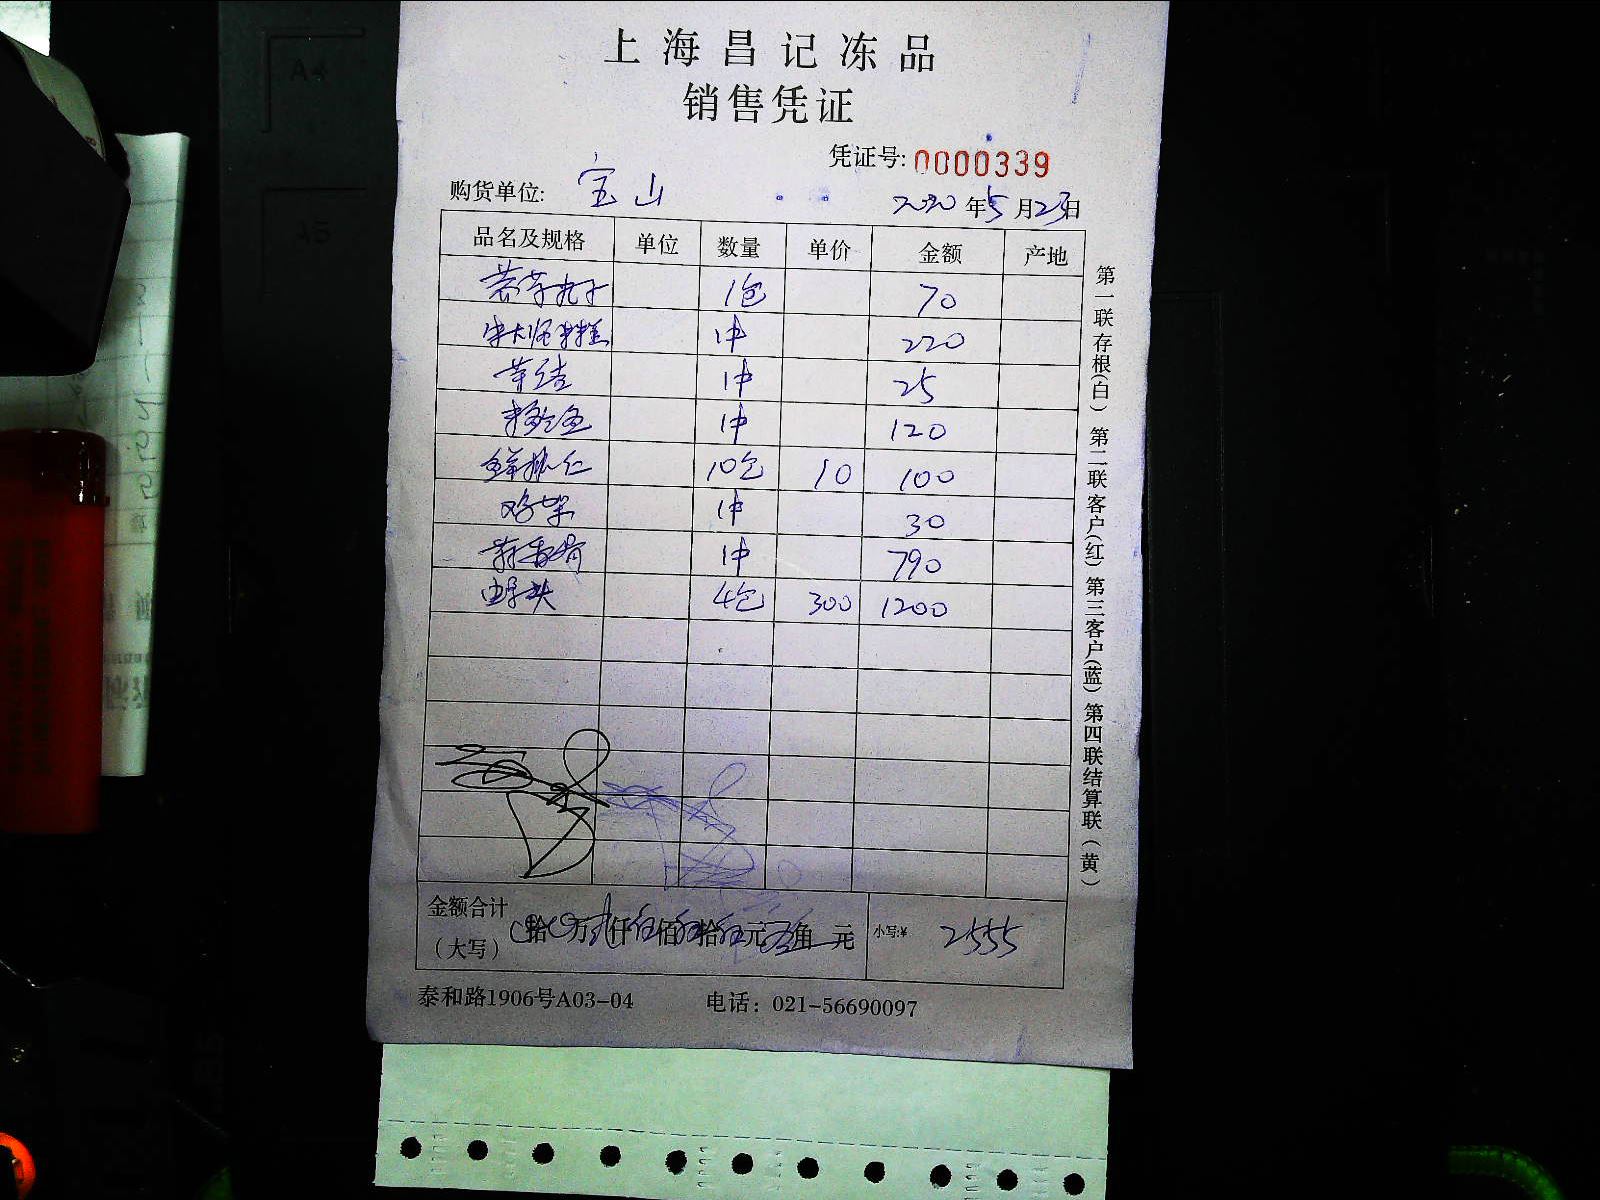 上海昌记冻品
销售凭证
凭证号: 0000339
购货单位: 宝山 2020年5月23日
品名及规格 单位 数量 单价 金额 产地
丸子 1包 70
牛大师 1件 220
结 1件 25
鱼 1件 120
鲜虾仁 10包 10 100
鸡架 1件 30
1件 790
头 4包 300 1200
金额合计
(大写) 拾 万 仟 佰 拾 元 角 元 小写:¥ 2555
泰和路1906号A03-04 电话: 021-56690097
第一联存根(白) 第二联客户(红) 第三客户(蓝) 第四联结算联(黄)
A4
A5